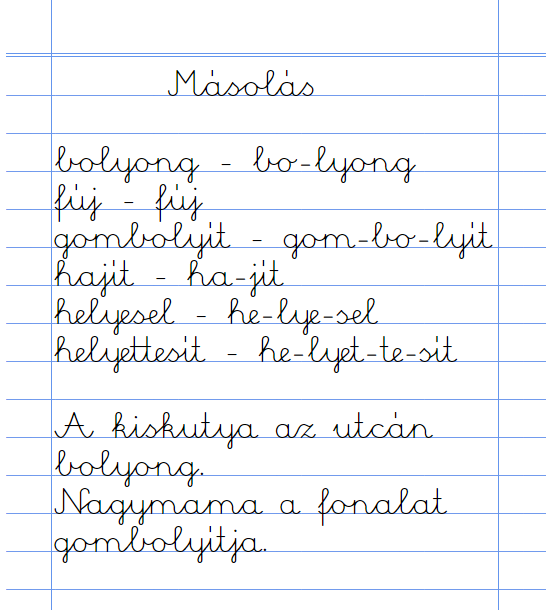 Másolás
bolyong - bo-lyong
fúj - fúj
gombolyít - gom-bo-lyít
hajít - ha-jít
helyesel - he-lye-sel
helyettesít - he-lyet-te-sít
A kiskutya az utcán
bolyong.
Nagymama a fonalat
gombolyítja.